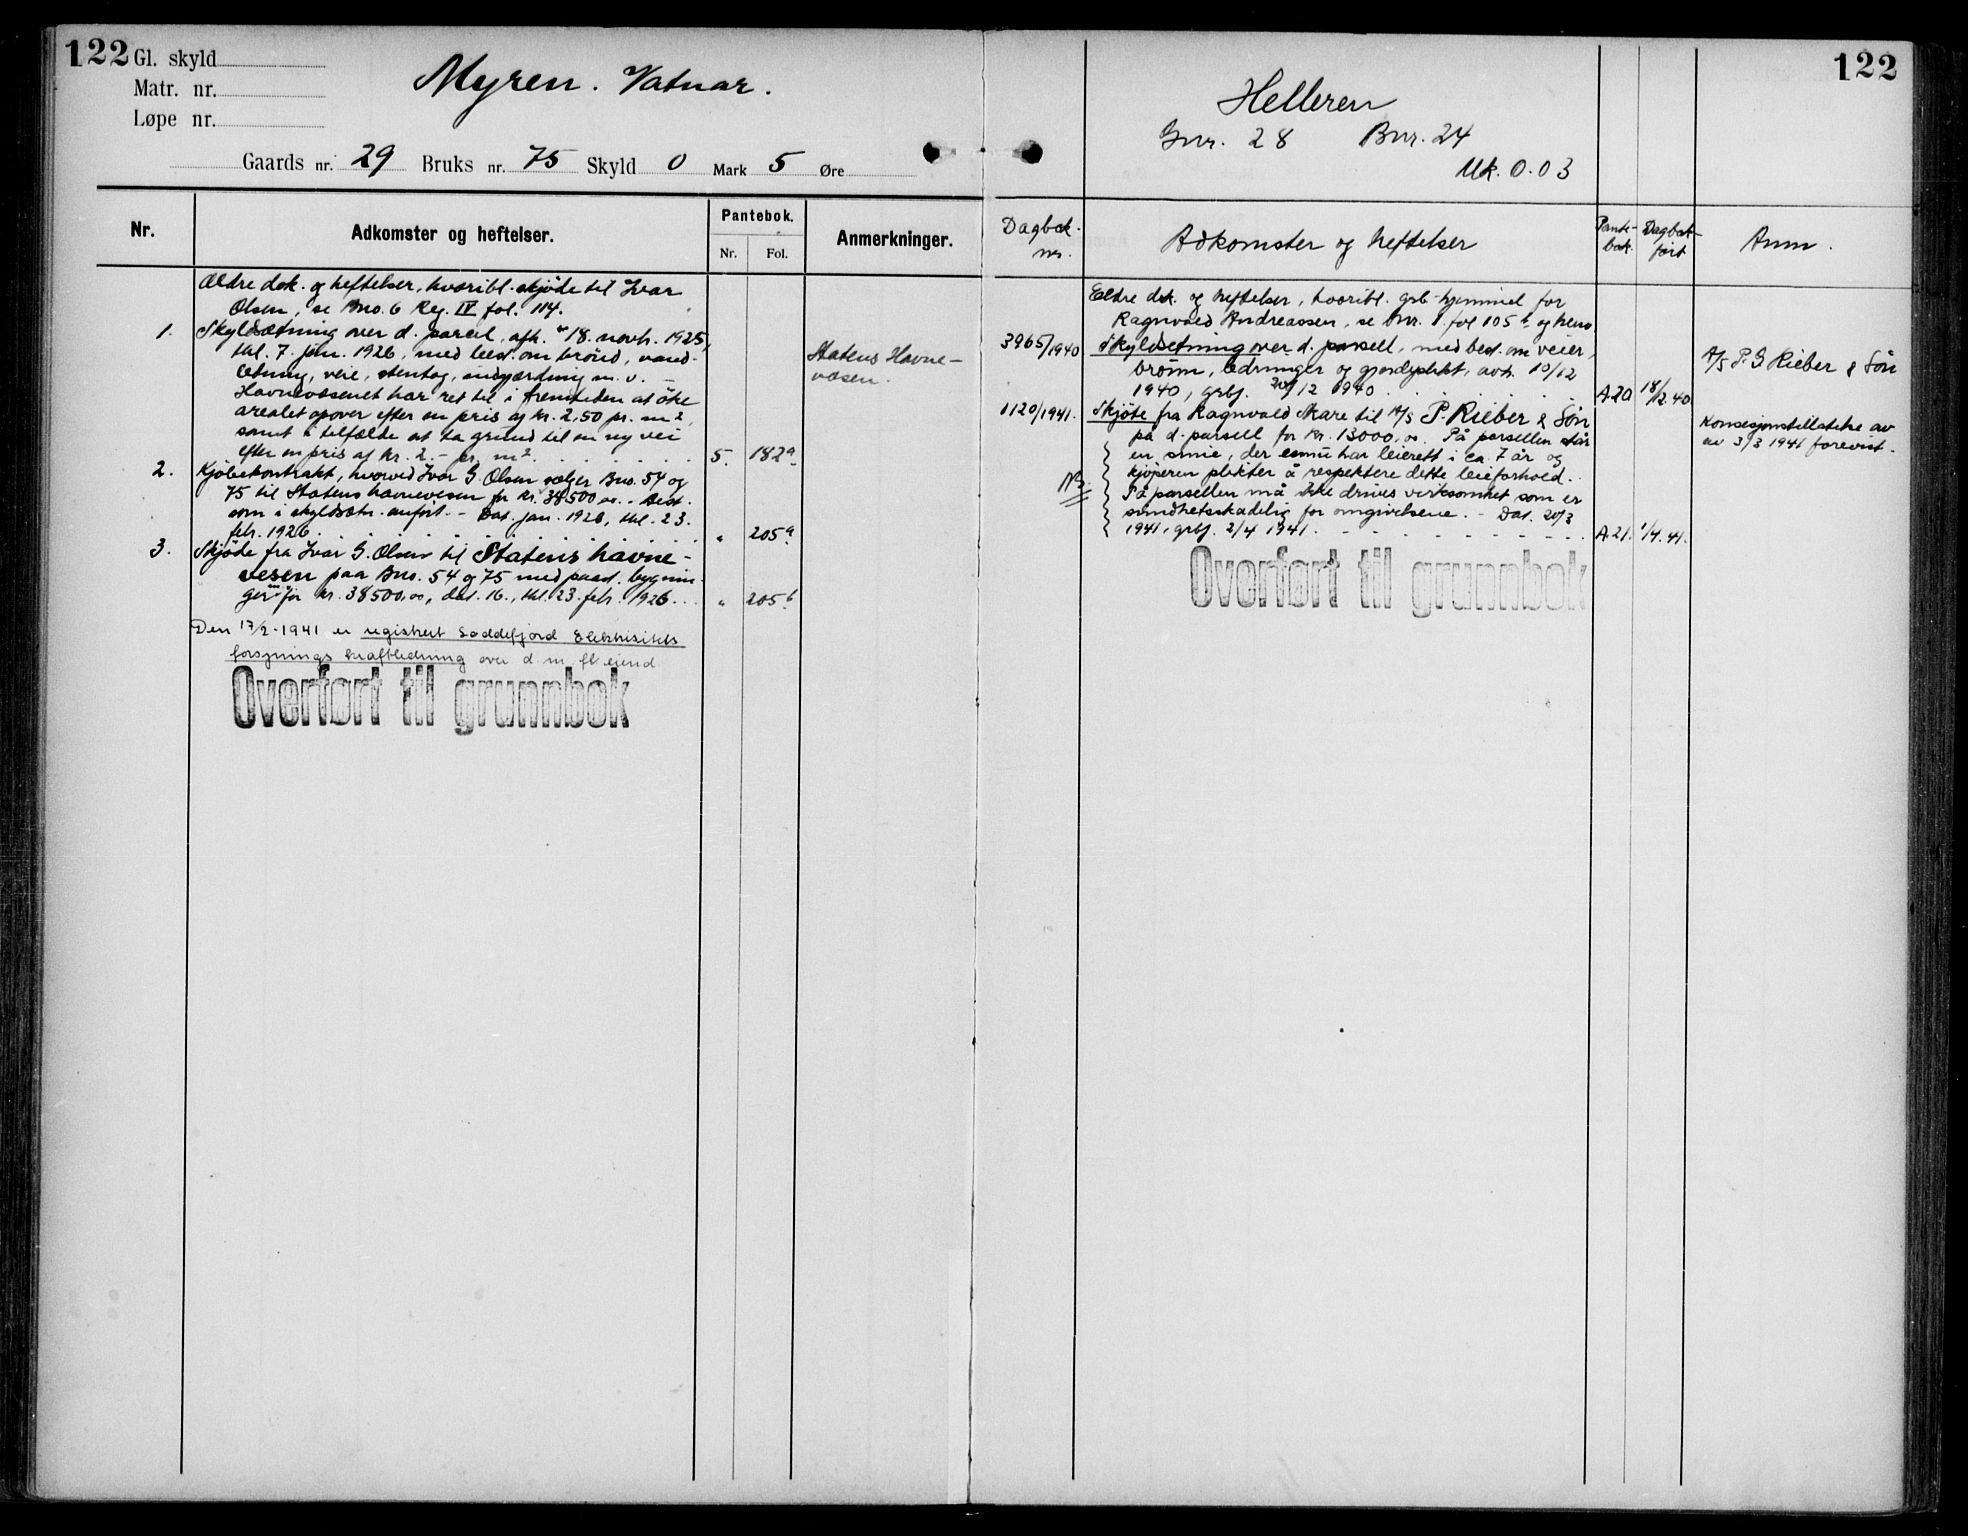 122
Gl. skyld
Matr. nr.
Løpe nr.
Myren. Vatnar.
Gaards nr. 29 Bruks nr. 75 Skyld 0 Mark 5 Øre
Nr.
Adkomster og heftelser.
Pantebok.
Nr. Fol.
Anmerkninger.
Ældre dok. og heftelser, hvoribl. skjøde til Ivar
Olsen, se Bno. 6 Reg. IV fol. 114.
1. Skyldsætning over d. parcel, afh. 18. novb. 1925,
thl. 7. jan. 1926, med best. om brønd, vand-
ledning, veie, stentag, indgjærdning m. v. —
Havnevæsenet har ret til i fremtiden at öke
arealet opover efter en pris af kr. 2,50 pr. m²,
samt i tilfælde at ta grund til en ny vei
efter en pris af kr. 2.- pr. m². 5. 182a
Statens Havne-
væsen.
2. Kjøbekontrakt, hvorved Ivar G. Olsen sælger Bno. 54 og
75 til Statens havnevesen for kr. 38500,00. - Best.
som i skyldsætn. anført. - Dat. jan. 1926, thl. 23.
febr. 1926 „ 205a
3. Skjøde fra Ivar G. Olsen til Statens havne-
vesen paa Bno. 54 og 75 med paast. bygnin-
ger for kr. 38500,00, dat. 16., thl. 23. febr. 1926. „ 205b
Den 17/2-1941 er registrert Loddefjord Elektrisitets
forsynings kraftledning over d. m. fl. eiend
Overført til grunnbok
122
Helleren
Gnr. 28 Bnr. 24
Mk. 0.03
Dagbok-
nr.
Adkomster og heftelser
Pante-
bok.
Dagbok-
ført
Anm.
Eldre dok. og heftelser, hvoribl. grb-hjemmel for
Ragnvald Andreassen, se bnr. 1 fol 105b og
3965/1940 Skyldsetning over d. parsell, med best. om veier,
brønn, ledninger og gjerdeplikt, avh. 10/12
1940, grbf. 20/12 1940 A.20 18/12.40
A/S P. G Rieber & Søn
1120/1941. Skjøte fra Ragnvald Skare til A/S P. Rieber & Søn
på d. parsell for kr. 13000,00. På parsellen står
en smie, der ennu har leierett i ca. 7 år og
kjøperen plikter å respektere dette leieforhold.
NB.
På parsellen må ikke drives virksomhet som er
sundhetsskadelig for omgivelsene. - Dat. 20/3
1941, grbf. 2/4 1941. A.21. 1/4.41.
Konsesjonstillatelse av
av 3/3 1941 forevist.
Overført til grunnbok